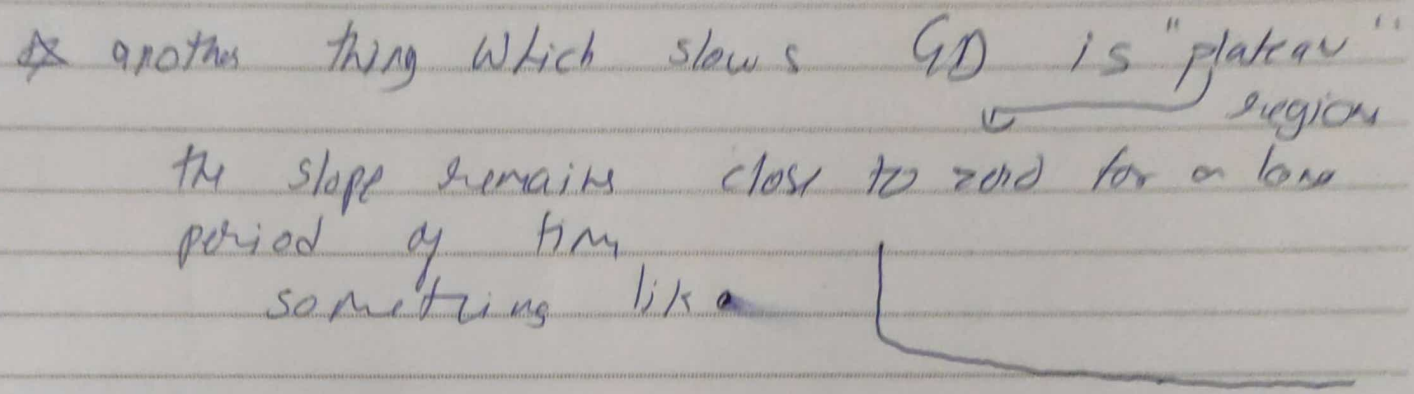 ☆ another thing which slows GD is "plateau"
region
the slope remains close to zero for a long
period of time
something like